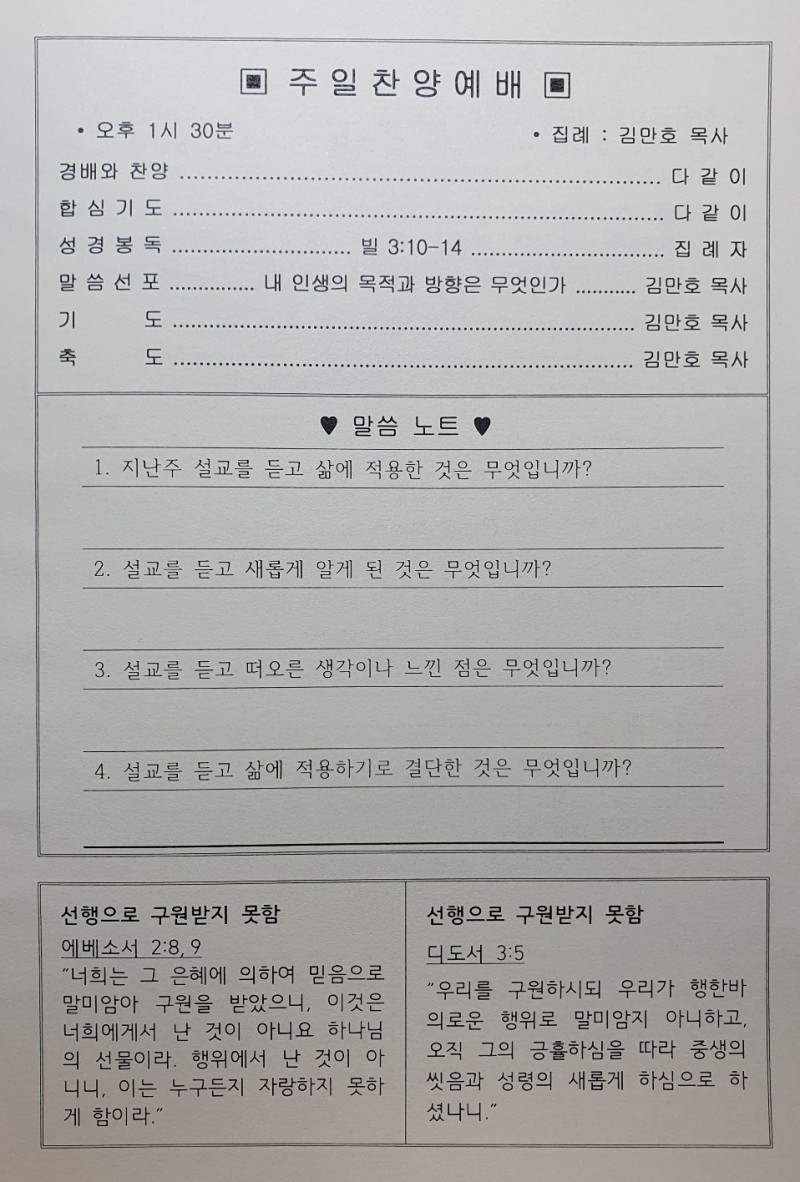 ▣ 주일찬양예배 ▣
• 오후 1시 30분 • 집례 : 김만호 목사
경배와 찬양 ........................................ 다 같 이
합 심 기 도 ........................................ 다 같 이
성 경 봉 독 .................... 빌 3:10-14 .................... 집 례 자
말 씀 선 포 .............. 내 인생의 목적과 방향은 무엇인가 ........... 김만호 목사
기 도 ........................................ 김만호 목사
축 도 ........................................ 김만호 목사
♥ 말씀 노트 ♥
1. 지난주 설교를 듣고 삶에 적용한 것은 무엇입니까?
2. 설교를 듣고 새롭게 알게 된 것은 무엇입니까?
3. 설교를 듣고 떠오른 생각이나 느낀 점은 무엇입니까?
4. 설교를 듣고 삶에 적용하기로 결단한 것은 무엇입니까?
선행으로 구원받지 못함
에베소서 2:8, 9
"너희는 그 은혜에 의하여 믿음으로
말미암아 구원을 받았으니, 이것은
너희에게서 난 것이 아니요 하나님
의 선물이라. 행위에서 난 것이 아
니니, 이는 누구든지 자랑하지 못하
게 함이라."
선행으로 구원받지 못함
디도서 3:5
"우리를 구원하시되 우리가 행한바
의로운 행위로 말미암지 아니하고,
오직 그의 긍휼하심을 따라 중생의
씻음과 성령의 새롭게 하심으로 하
셨나니."